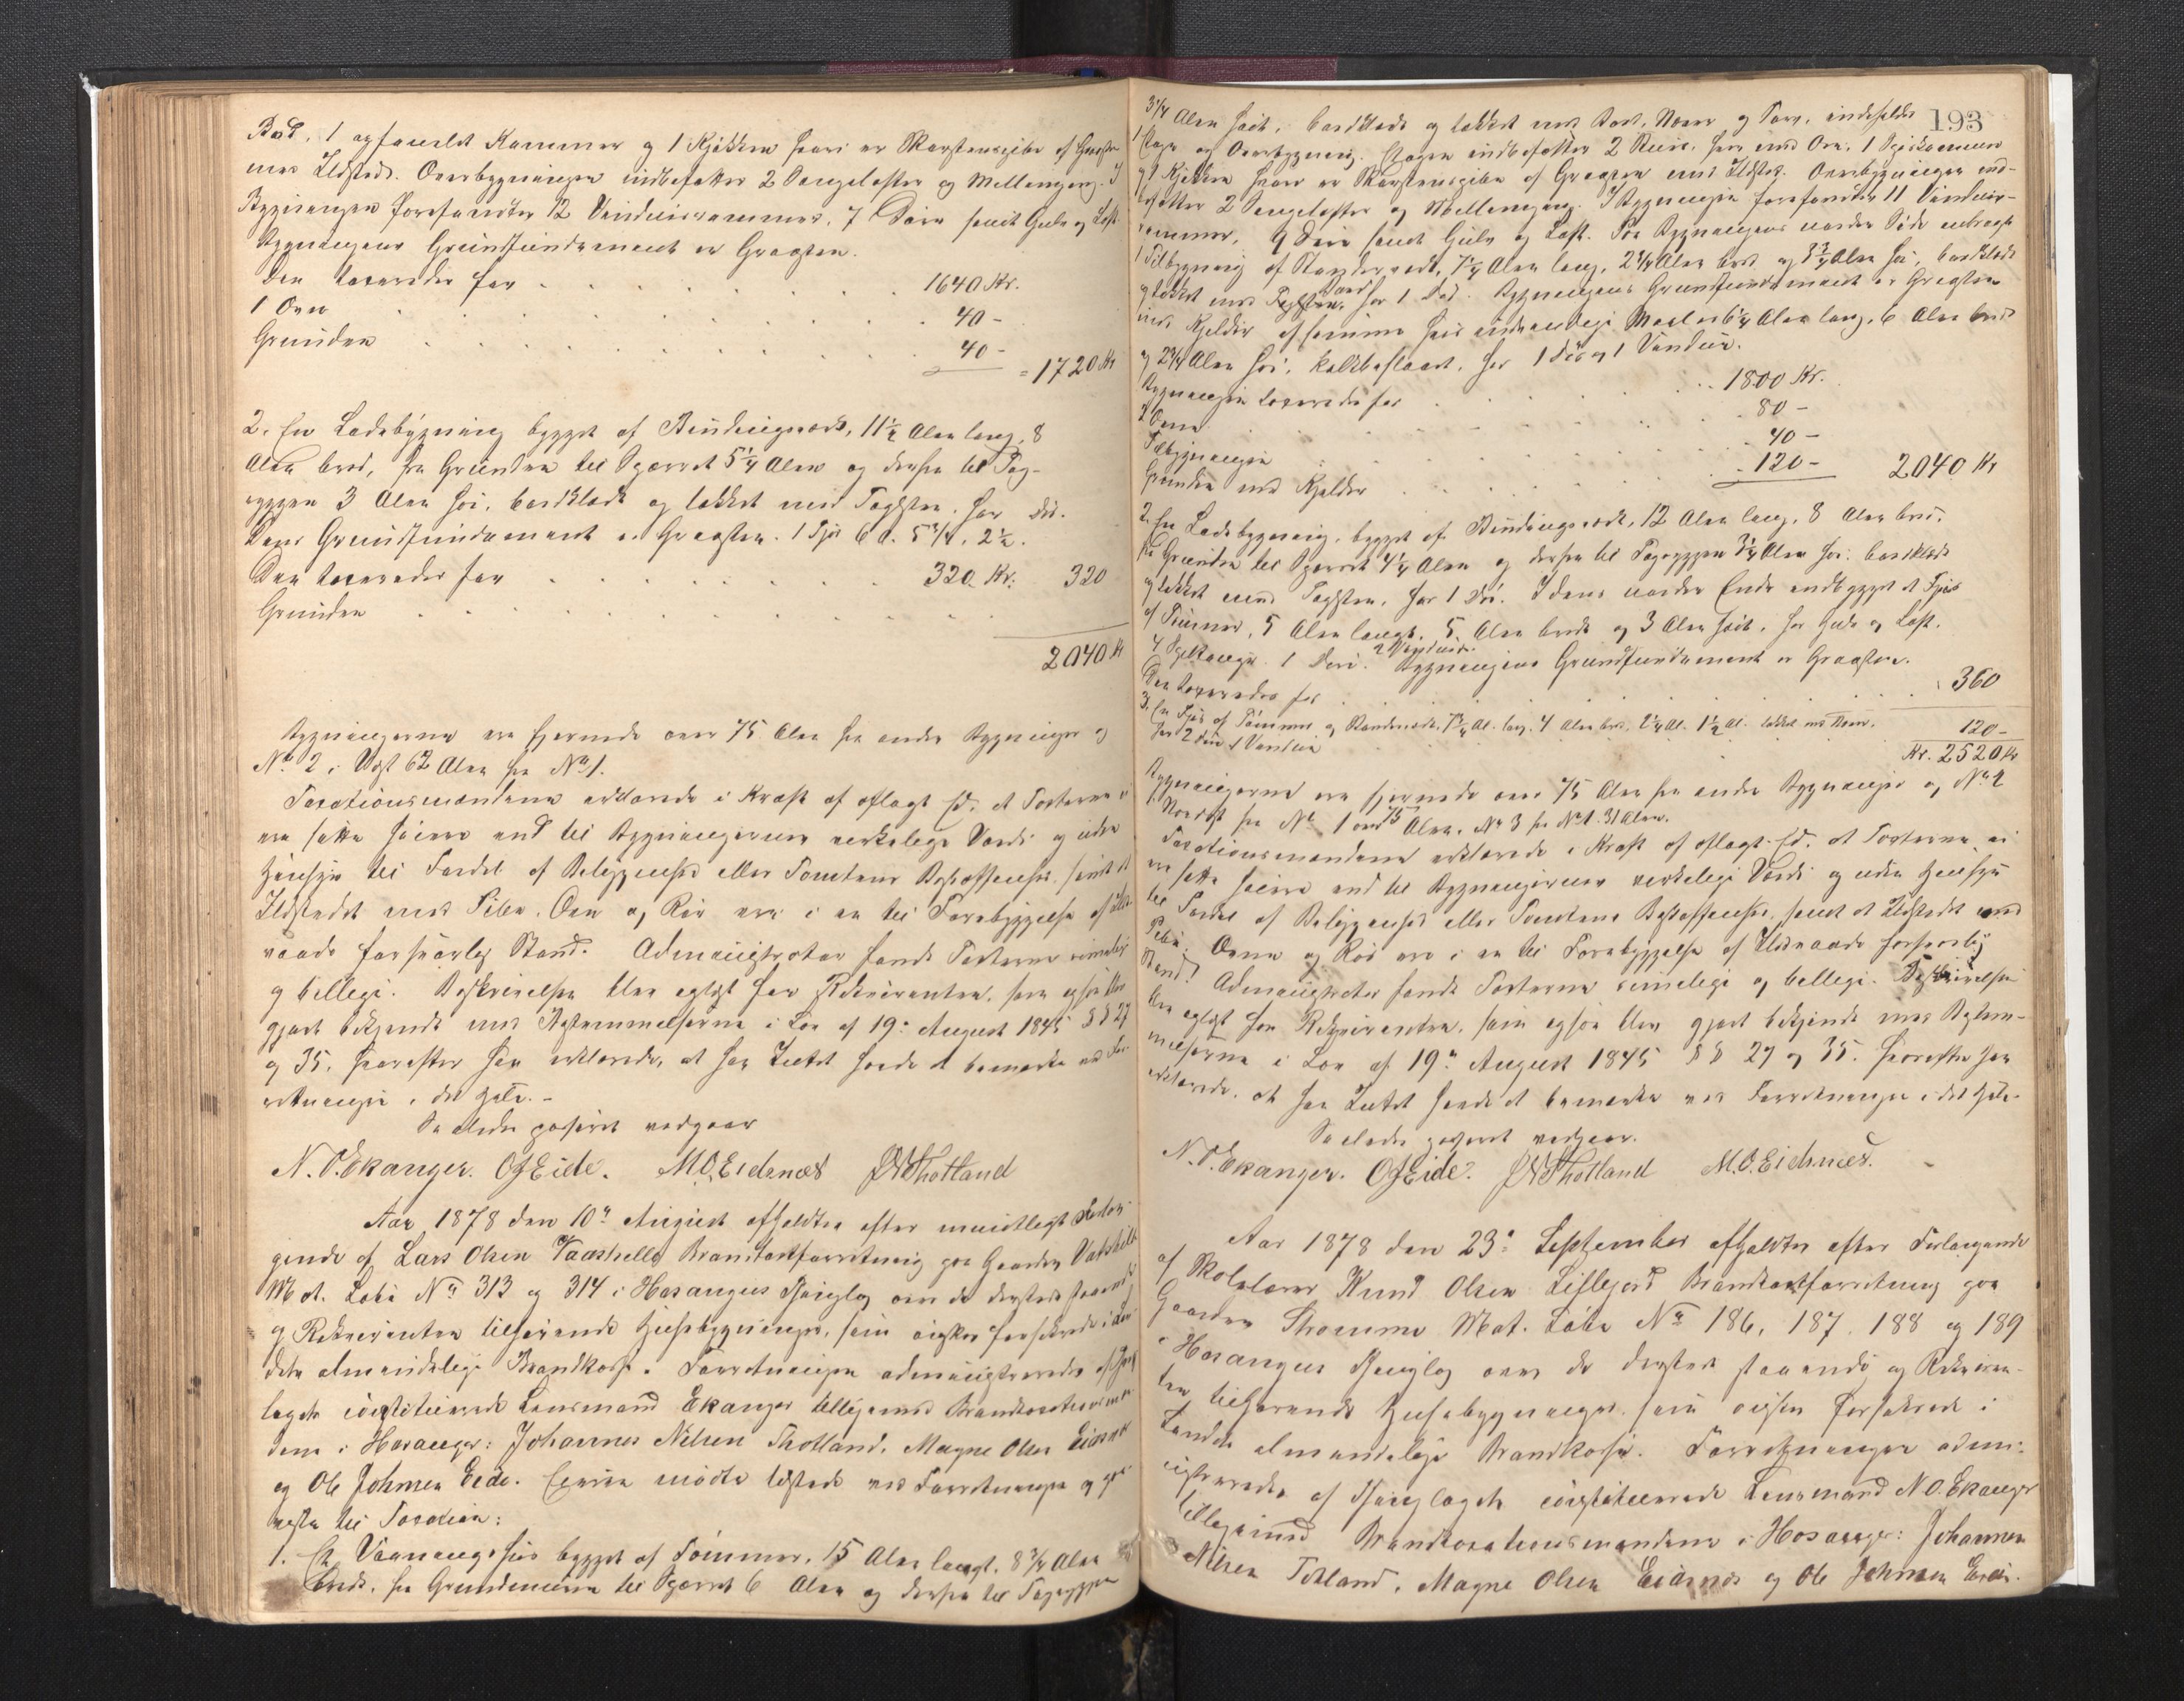 Bod, 1 aparelt Kammer og 1 Kjøkken hvori er Skorstenspibe af Graasten
med Ildsted. Overbygningen indbefatter 2 Sengelofter og Mellemgang. I
Bygningen forefandtes 12 Vinduesrammer, 7 Døre samt Gulv og Loft
Bygningens Grundfundament er Graasten.
Den taxeredes for 1640 Kr.
1 Ovn 40 -
Grunden 40 - = 1720 Kr
2. En Ladebygning bygget af Bindingsværk, 11½ Alen lang, 8
Alen bred, fra Grunden til Sparret 5¼ Alen og derfra til Tag-
ryggen 3 Alen høi, bordklædt og tækket med Tagsten. Har Dør.
Dens Grundfundament er Graasten. 1 Fjøs 6 A. 5¾, 2½.
Den taxeredes for 320 Kr. 320
Grunden
2040 Kr
Bygningerne ere fjernede over 75 Alen fra andre Bygninger og
No 2 i Vest 62 Alen fra No 1.
Taxationsmændene erklærede i Kraft af aflagt Ed, at Taxterne ei
ere satte høiere end til Bygningernes virkelige Værdi og uden
Hensyn til Fordel af Beliggenhed eller Tomtens Beskaffenhed, samt at
Ildstedet med Pibe, Ovn og Rør ere i en til Forebyggelse af Ilds-
vaade forsvarlig Stand. Administrator fandt Taxterne rimelige
og billige. Beskrivelsen blev oplæst for Rekvirenten, som ogsaa blev
gjort bekjendt med Bestemmelserne i Lov af 19de August 1845 §§ 27
og 35, hvorefter han erklærede, at han Intet havde at bemærke ved For-
retningen i det Hele. -
Saaledes passeret vedgaar
N. O. Ekanger. O J Eide. M. O. Eidsnæs J N Thotland
Aar 1878 den 10de August afholdtes efter mundtligt Forlan-
gende af Lars Olsen Vaashelle Brandtaxtforretning paa Gaarden Vatshelle
Mat. Løbe No 313 og 314 i Hosangers Thinglag over de dersteds staaende
og Rekvirenten tilhørende Huusbygninger, som ønskes forsikrede i Lan-
dets almindelige Brandkasse. Forretningen administreredes af Thing-
lagets constituerede Lensmand Ekanger tilligemed Brandtaxationsmæn-
dene i Hosanger: Johannes Nilsen Thotland, Magne Olsen Eidsnæs
og Ole Johnsen Eide. Eieren mødte tilstede ved Forretningen og paa-
viste til Taxation:
1. Et Vaaningshus bygget af Tømmer, 15 Alen langt, 8¾ Alen
bredt, fra Grundmuren til Sparret 6 Alen og derfra til Tagryggen
193
3¼ Alen høit, bordklædt og tækket med Bord, Næver og Torv, indeholder
1 Etage og Overbygning. Etagen indbefatter 2 Stuer, hver med Ovn, 1 Spisekammer
og 1 Kjøkken hvori er Skorstenspibe af Graasten med Ildsted. Overbygningen ind-
befatter 2 Sengelofter og Mellemgang. I Bygningen forefandtes 11 Vindues-
rammer, 9 Døre samt Gulv og Loft. Paa Bygningens nordre Side anbragt
1 Tilbygning af Standerværk, 7¼ Alen lang, 2¼ Alen bred og 3¾ Alen høi, bordklædt
og tækket med Tagsten, har 1 Dør. Bygningens Grundfundament er Graasten
med Kjelder af samme hvis indvendige Maal er 6¼ Alen lang, 6 Alen bred
og 2¾ Alen høi, kalkbeslaaet, har 1 Dør og 1 Vindue.
Bygningen taxeredes for 1800 Kr.
2 Ovne 80 -
Tilbygningen 40 -
Grunden med Kjelder 120 - 2040 Kr
2. En Ladebygning, bygget af Bindingsværk, 12 Alen lang, 8 Alen bred,
fra Grunden til Sparret 4¼ Alen og derfra til Tagryggen 3¼ Alen høi, bordklædt
og tækket med Tagsten, har 1 Dør. I dens nordre Ende indbygget et Fjøs
af Tømmer, 5 Alen langt, 5 Alen bredt og 3 Alen høit, har Gulv og Loft.
1 Dør. 2 Vinduer. Bygningens Grundfundament er Graasten.
Den taxeredes for 360
3. En Fjøs af Tømmer og Standerværk, 7¾ Al. lang, 4 Alen bred, 2¼ Al. 1½ Al. tækket med Torv.
har 2 Døre 1 Vindue 120 -
Kr. 2520 Kr
Bygningerne ere fjernede over 75 Alen fra andre Bygninger og No 2
i Nordost fra No 1 over 75 Alen. No 3 fra No 1. 31 Alen.
Taxationsmændene erklærede i Kraft af aflagt Ed, at Taxterne ei
ere satte høiere end til Bygningernes virkelige Værdi og uden Hensyn
til Fordel af Beliggenhed eller Tomtens Beskaffenhed, samt at Ildstedet med
Pibe, Ovne og Rør ere i en til Forebyggelse af Ildsvaade forsvarlig
Stand. Administrator fandt Taxterne rimelige og billige. Beskrivelsen
blev oplæst for Rekvirenten, som ogsaa blev gjort bekjendt med Bestem-
melserne i Lov af 19de August 1845 §§ 27 og 35. hvorefter han
erklærede, at han Intet havde at bemærke ved Forretningen i det Hele.
Saaledes passeret vedgaar.
N. O. Ekanger. O J Eide. J N Thotland M. O. Eidsnæs.
Aar 1878 den 23de September afholdtes efter Forlangende
af Skolelærer Knud Olsen Lillejord Brandtaxtforretning paa
Gaarden Stromme Mat. Løbe No 186, 187, 188 og 189
i Hosangers Thinglag over de dersteds staaende og Rekviren-
ten tilhørende Huusbygninger som ønskes forsikrede i
Landets almindelige Brandkasse. Forretningen admi-
nistreredes af Thinglagets constituerede Lensmand N. O. Ekanger
tilligemed Brandtaxationsmændene i Hosanger: Johannes
Nilsen Totland, Magne Olsen Eidsnæs og Ole Johnsen Eide.